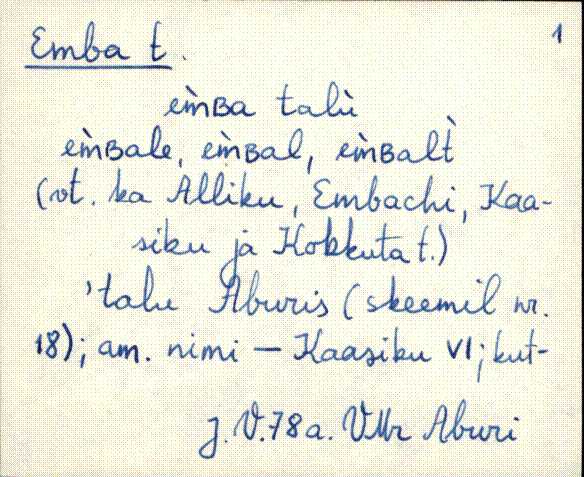 Emba t.
1
em̀ʙa talù
em̀ʙale, em̀ʙal, em̀ʙalt̀
(vt. ka Alliku, Embachi, Kaa-
siku ja Kokkuta t.)
'talu Aburis (skeemil nr.
18); am. nimi — Kaasiku VI; kut-
J. V. 78 a. VMr Aburi